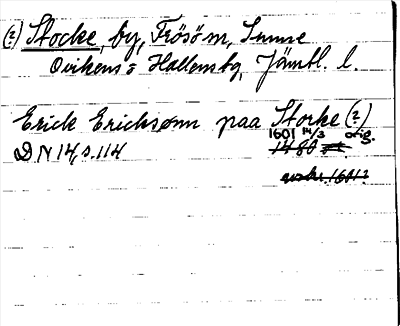 (?) Stocke, by, Frösö sn, Sunne
Ovikens o Hallens tg, Jämtl. l.
Erick Ericksønn paa Storke (?)
1601 14/3 orig.
D N 14, s. 114 1480
1601?